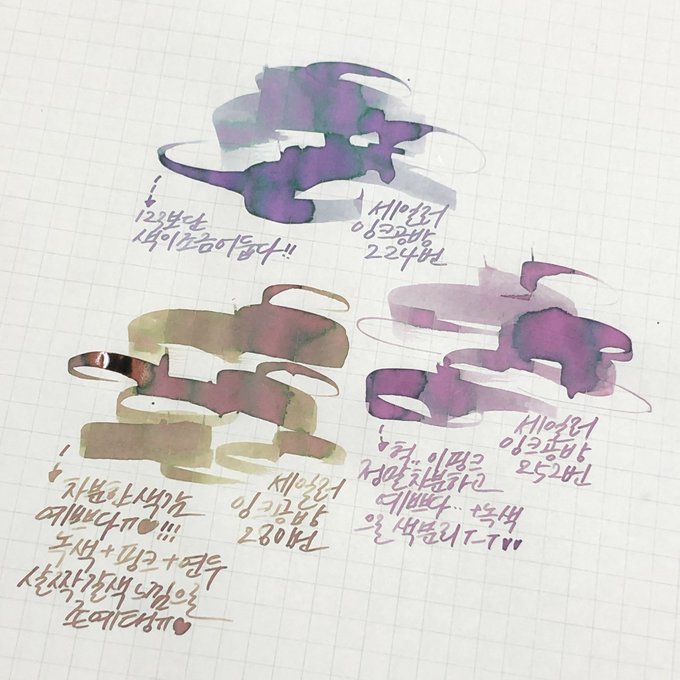 세일러
잉크공방
224번
123보단
색이 조금 어둡다!!
세일러
잉크공방
252번
헉.. 이 핑크
정말 차분하고
예쁘다.. +녹색
으로 색분리 T_T♥♥
세일러
잉크공방
280번
차분한 색감
예쁘다ㅠ♥!!!
녹색+핑크+연두
살짝 갈색 느낌으로
존예탱ㅠ♥